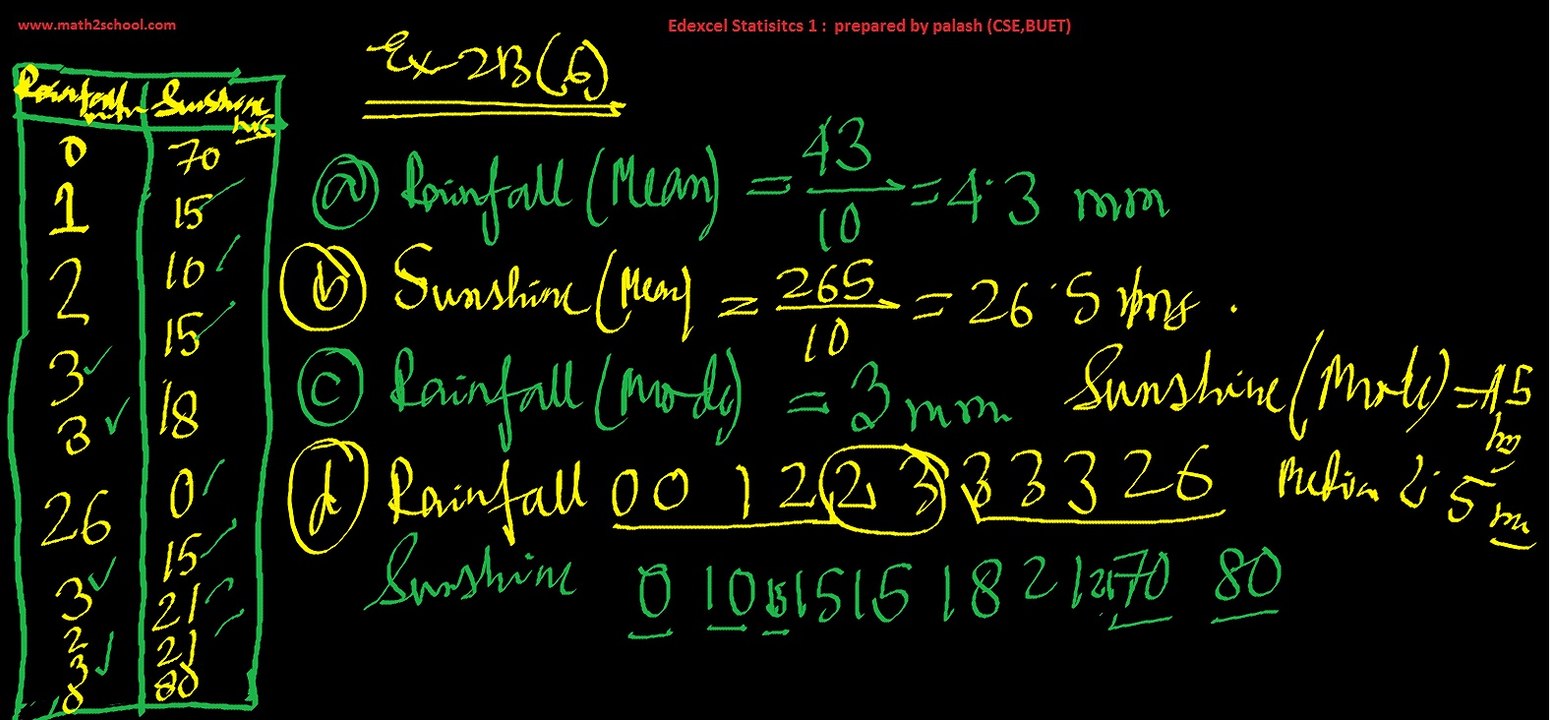 www.math2school.com
Edexcel Statisitcs 1 : prepared by palash (CSE,BUET)
Ex 2B(6)
Rainfall mm Sunshine hrs
0 70
1 15
2 10
3 15
3 18
26 0
3 15
2 21
3 21
0 80
(a) Rainfall (Mean) = 43/10 = 4.3 mm
(b) Sunshine (Mean) = 265/10 = 26.5 hrs.
(c) Rainfall (Mode) = 3 mm Sunshine (Mode) = 15 hrs
(d) Rainfall 0 0 1 2 2 3 3 3 3 26 Median 2.5 mm
Sunshine 0 10 15 15 15 18 21 21 70 80